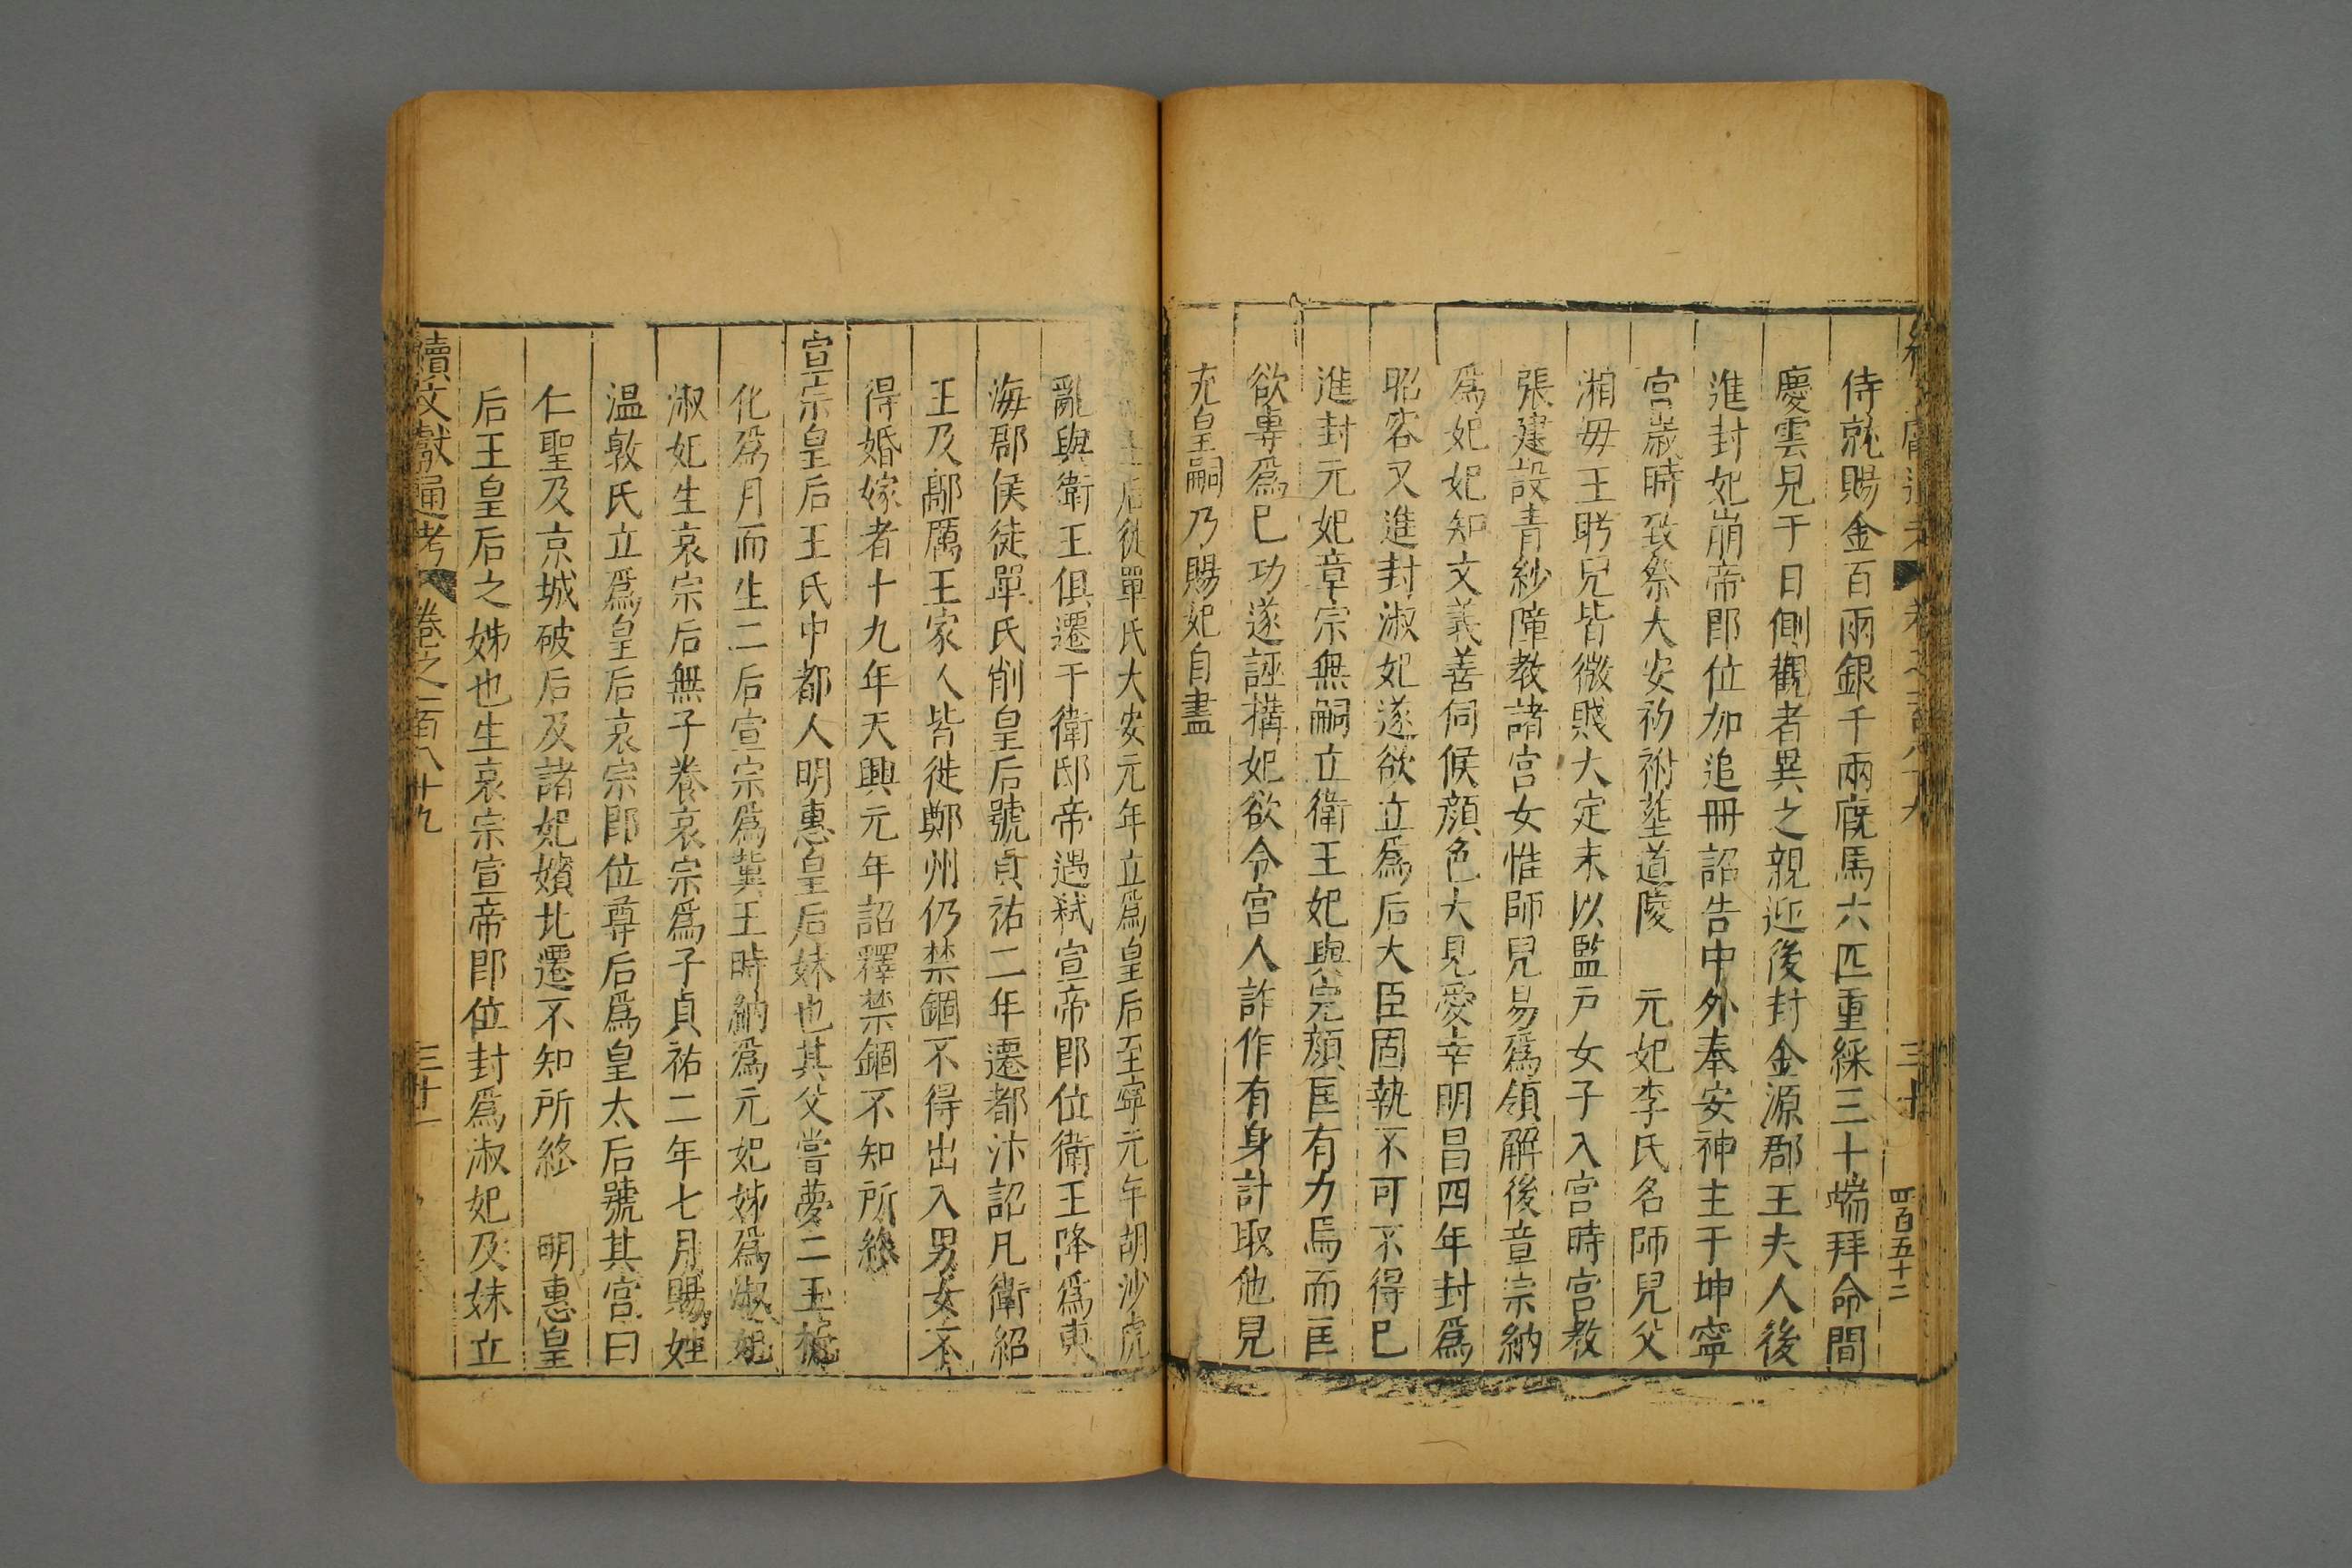 四百五十二
侍就賜金百兩銀千兩廐馬六匹重綵三十端拜命間
慶雲見于日側觀者異之親迎後封金源郡王夫人後
進封妃崩帝即位加追冊詔告中外奉安神主于坤寧
宮歲時致祭大安初祔塟道陵　元妃李氏名師兒父
湘毋王盻兒皆微賤大定末以監戸女子入宮時宮教
張建設青紗障教諸宮女惟師兒易爲領解後章宗納
爲妃妃知文義善伺候顏色大見愛幸明昌四年封爲
昭容又進封淑妃遂欲立爲后大臣固執不可不得巳
進封元妃章宗無嗣立衛王妃與完顏匡有力焉而匡
欲專爲巳功遂誣構妃欲令宮人詐作有身計取他兒
充皇嗣乃賜妃自盡
后徒單氏大安元年立爲皇后至寧元年胡沙虎
亂與衛王俱遷于衛邸帝遇弒宣帝即位衛王降爲東
海郡侯徒單氏削皇后號貞祐二年遷都汴詔凡衛紹
王及鄗厲王家人皆徙鄭州仍禁錮不得出入男女不
得婚嫁者十九年天興元年詔釋禁錮不知所終
宣宗皇后王氏中都人明惠皇后妹也其父嘗夢二玉梳
化爲月而生二后宣宗爲冀王時納爲元妃姊爲淑妃
淑妃生哀宗后無子養哀宗爲子貞祐二年七月賜姓
温敦氏立爲皇后哀宗即位尊后爲皇太后號其宮曰
仁聖及京城破后及諸妃嬪北遷不知所終　明惠皇
后王皇后之姊也生哀宗宣帝即位封爲淑妃及妹立
續文獻通考　卷之一百八十九　三十一